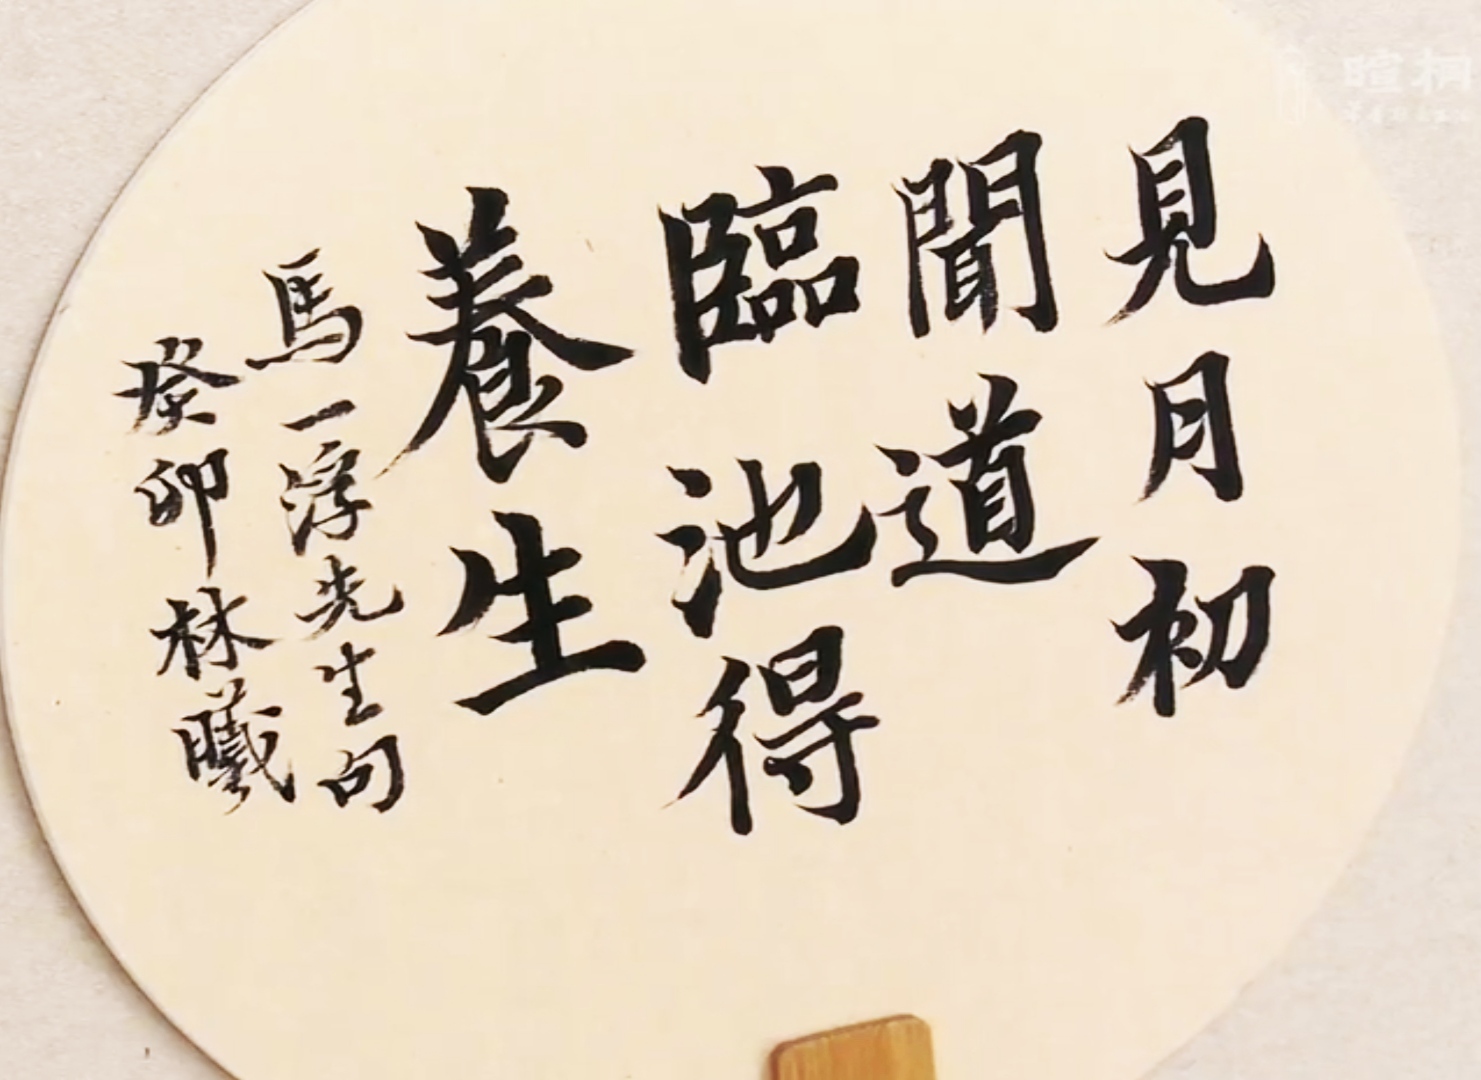 見月初
聞道
臨池得
養生
馬一浮先生句
癸卯林曦
暄桐